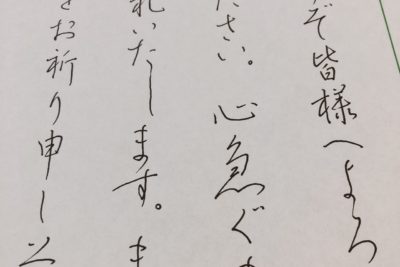 ぞ皆様へよろ
ださい。心急ぐま
礼いたします。ま
をお祈り申し上